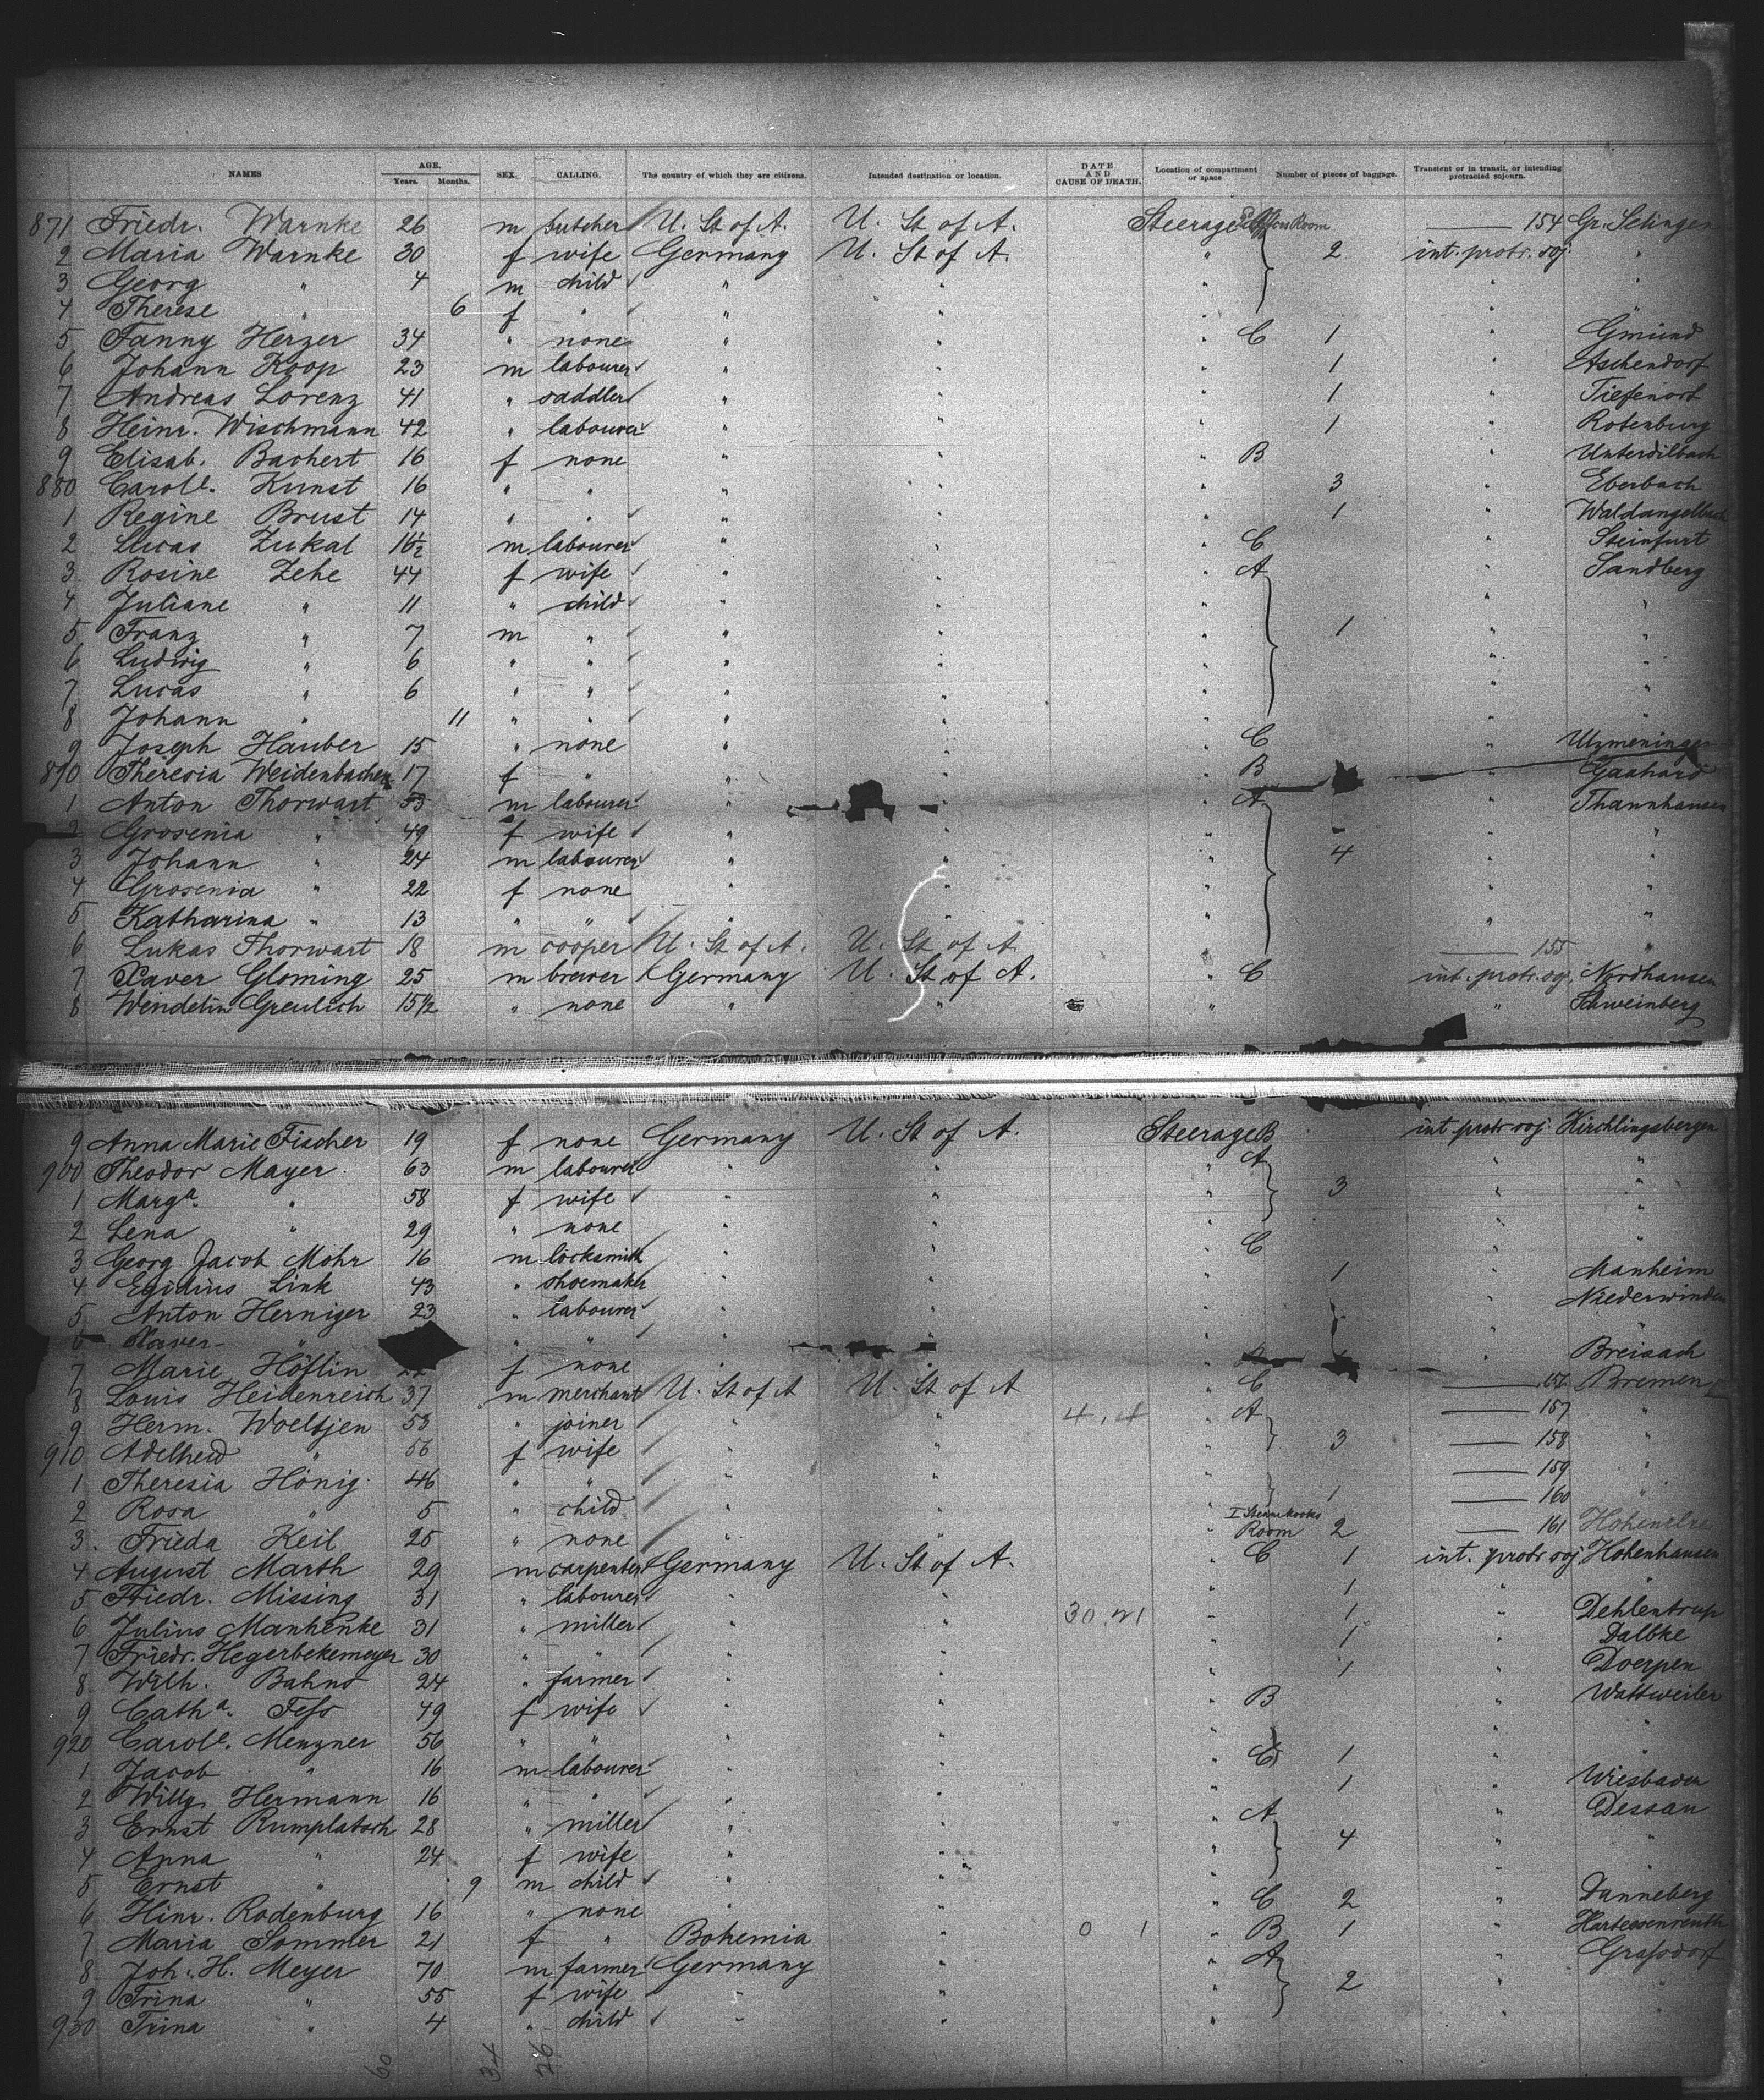 NAMES AGE. Years. Months. SEX. CALLING. The country of which they are citizens. Intended destination or location. DATE AND CAUSE OF DEATH. Location of compartment or space Number of pieces of baggage. Transient or in transit, or intending protracted sojourn.
871 Friedr. Warnke 26 m butcher U. St of A. U. St of A. Steerage Room 154 Gr. Setingen
2 Maria Warnke 30 f wife Germany U. St of A. " 2 int. protr. soj. "
3 Georg " 4 m child " " " " "
4 Therese " 6 f " " " " " "
5 Fanny Herzer 34 " none " " " C 1 " Gmünd
6 Johann Koop 23 m labourer " " " 1 " Aschendorf
7 Andreas Lorenz 41 " saddler " " " 1 " Tiefenort
8 Heinr. Wischmann 42 " labourer " " " 1 " Rotenburg
9 Elisab. Bachert 16 f none " " " B " Unterdilbach
880 Carole. Kunst 16 " " " " " 3 " Eberbach
1 Regine Brust 14 " " " " " 1 " Waldangelbach
2 Lucas Zukal 16½ m labourer " " " C " Steinfurt
3 Rosine Zehe 44 f wife " " " A " Sandberg
4 Juliane " 11 " child " " " " "
5 Franz " 7 m " " " " 1 " "
6 Ludwig " 6 " " " " " " "
7 Lucas " 6 " " " " " " "
8 Johann " 11 " " " " " " "
9 Joseph Hauber 15 " none " " " C " Utzmeningen
890 Theresia Weidenbacher 17 f " " " " B "
1 Anton Thorwart 53 m labourer " " " A " Thannhausen
2 Grosenia " 49 f wife " " " " "
3 Johann " 24 m labourer " " " 4 " "
4 Grosenia " 22 f none " " " " "
5 Katharina " 13 " " " " " " "
6 Lukas Thorwart 18 m cooper U. St of A. U. St of A. 155 "
7 Xaver Gloming 25 m brewer Germany U. St of A. " C int. protr. soj. Nordhausen
8 Wendelin Greulich 15½ " none " " " " Schweinberg
9 Anna Marie Fischer 19 f none Germany U. St of A. Steerage B int. protr. soj. Kirchlingsbergen
900 Theodor Mayer 63 m labourer " " " A " "
1 Marga. " 58 f wife " " " 3 " "
2 Lena " 29 " none " " " " "
3 Georg Jacob Mohr 16 m locksmith " " " C " "
4 Egidius Link 43 " shoemaker " " " 1 " Manheim
5 Anton Herniger 23 " labourer " " " " Niederwinden
6 Xaver " " " " " " " "
7 Marie Höflin 22 f none " " " " Breisach
8 Louis Heidenreich 37 m merchant U. St of A U. St of A " C 156 Bremen
9 Herm. Woeltjen 53 " joiner " " 4, 4 " A 157 "
910 Adelheid " 56 f wife " " " 3 158 "
1 Theresia Hönig 46 " " " " " 159 "
2 Rosa " 5 " child " " " 1 160 "
3 Frieda Keil 25 " none " " " Room 2 161 Hohenelbe
4 August Marth 29 m carpenter Germany U. St of A. " C 1 int. protr. soj Hohenhausen
5 Friedr. Missing 31 " labourer " " " 1 " "
6 Julius Manhenke 31 " miller " " 30, 21 " 1 " Dehlentrup
7 Friedr. Hegerbekemeyer 30 " " " " " 1 " Dalbke
8 Wilh. Bahns 24 " farmer " " " 1 " Doerpen
9 Catha. Fess 49 f wife " " " B " Wattweiler
920 Carole. Menzner 56 " " " " " " "
1 Jacob " 16 m labourer " " " C 1 " "
2 Willy Hermann 16 " " " " " 1 " Wiesbaden
3 Ernst Rumplatsch 28 " miller " " " A " Dessau
4 Anna " 24 f wife " " " 4 " "
5 Ernst " 9 m child " " " " "
6 Hinr. Rodenburg 16 " none " " " C 2 " Danneberg
7 Maria Sommer 21 f " Bohemia " 0 1 " B 1 "
8 Joh. H. Meyer 70 m farmer Germany " " A " Grassdorf
9 Trina " 55 f wife " " " 2 " "
930 Trina " 4 " child " " " " "
60 34 26